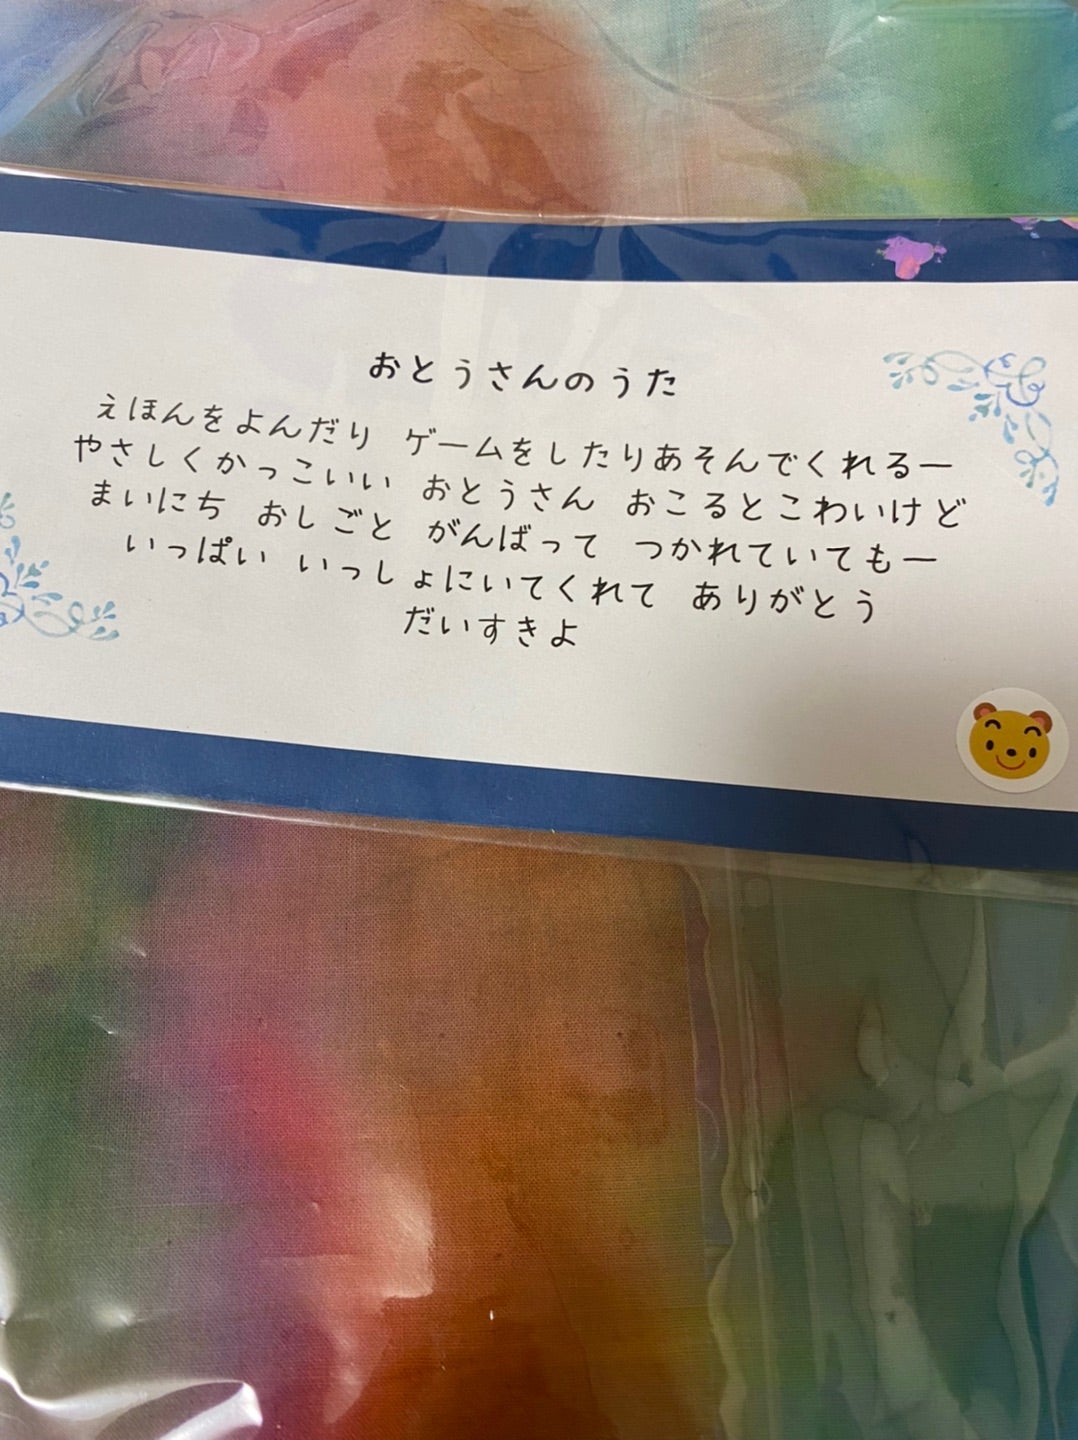 おとうさんのうた
えほんをよんだり ゲームをしたりあそんでくれるー
やさしくかっこいい おとうさん おこるとこわいけど
まいにち おしごと がんばって つかれていてもー
いっぱい いっしょにいてくれて ありがとう
だいすきよ